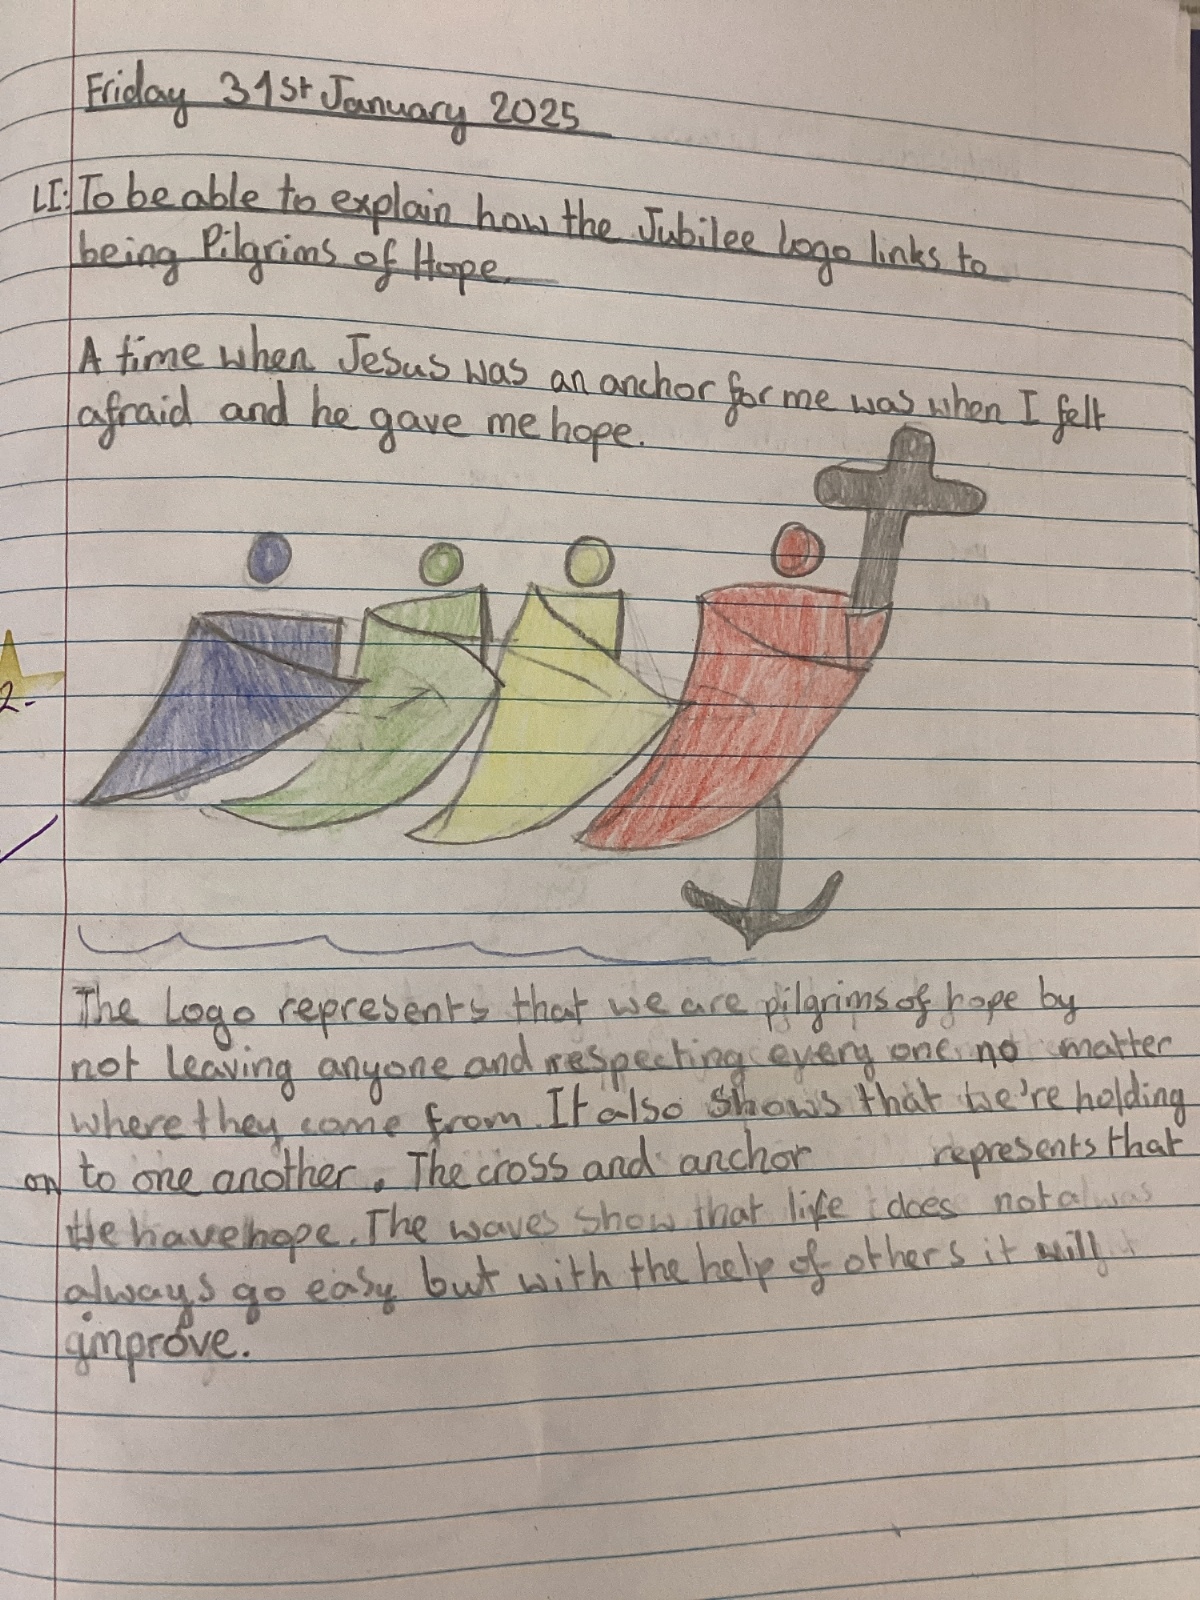 Friday 31st January 2025
LI: To be able to explain how the Jubilee logo links to
being Pilgrims of Hope.
A time when Jesus was an anchor for me was when I felt
afraid and he gave me hope.
2.
The Logo represents that we are pilgrims of hope by
not leaving anyone and respecting every one no matter
where they come from. It also shows that we're holding
on to one another. The cross and anchor represents that
we have hope. The waves show that life does not alwas
always go easy but with the help of others it will
improve.